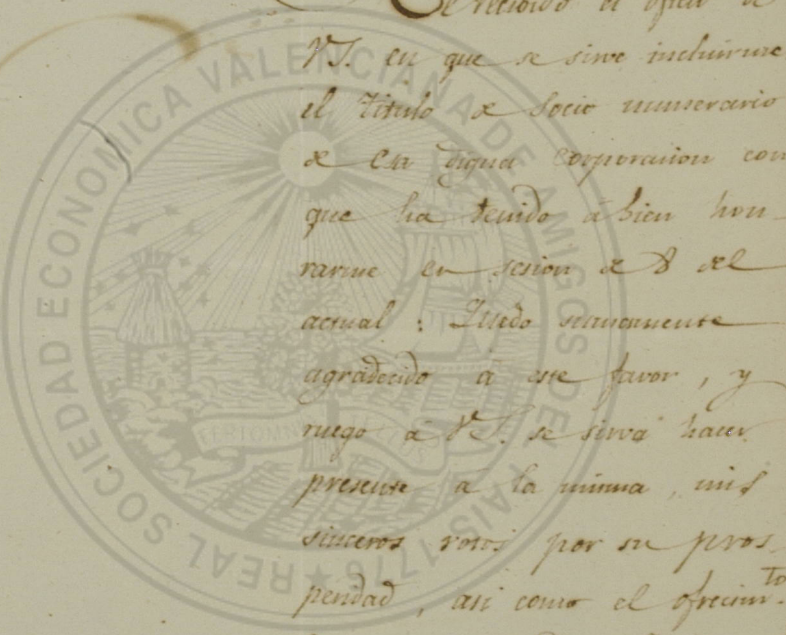 He recibido el oficio de
V.S. en que se sirve incluirme
el titulo de Socio numerario
de esa digna corporacion con
que ha tenido á bien hon-
rarme en sesion de 8 del
actual : Quedo sumamente
agradecido á este favor, y
ruego á V.S. se sirva hacer
presente á la misma, mis
sinceros votos por su pros-
peridad, asi como el ofrecim.to
REAL SOCIEDAD ECONOMICA VALENCIANA DE AMIGOS DEL PAIS 1776